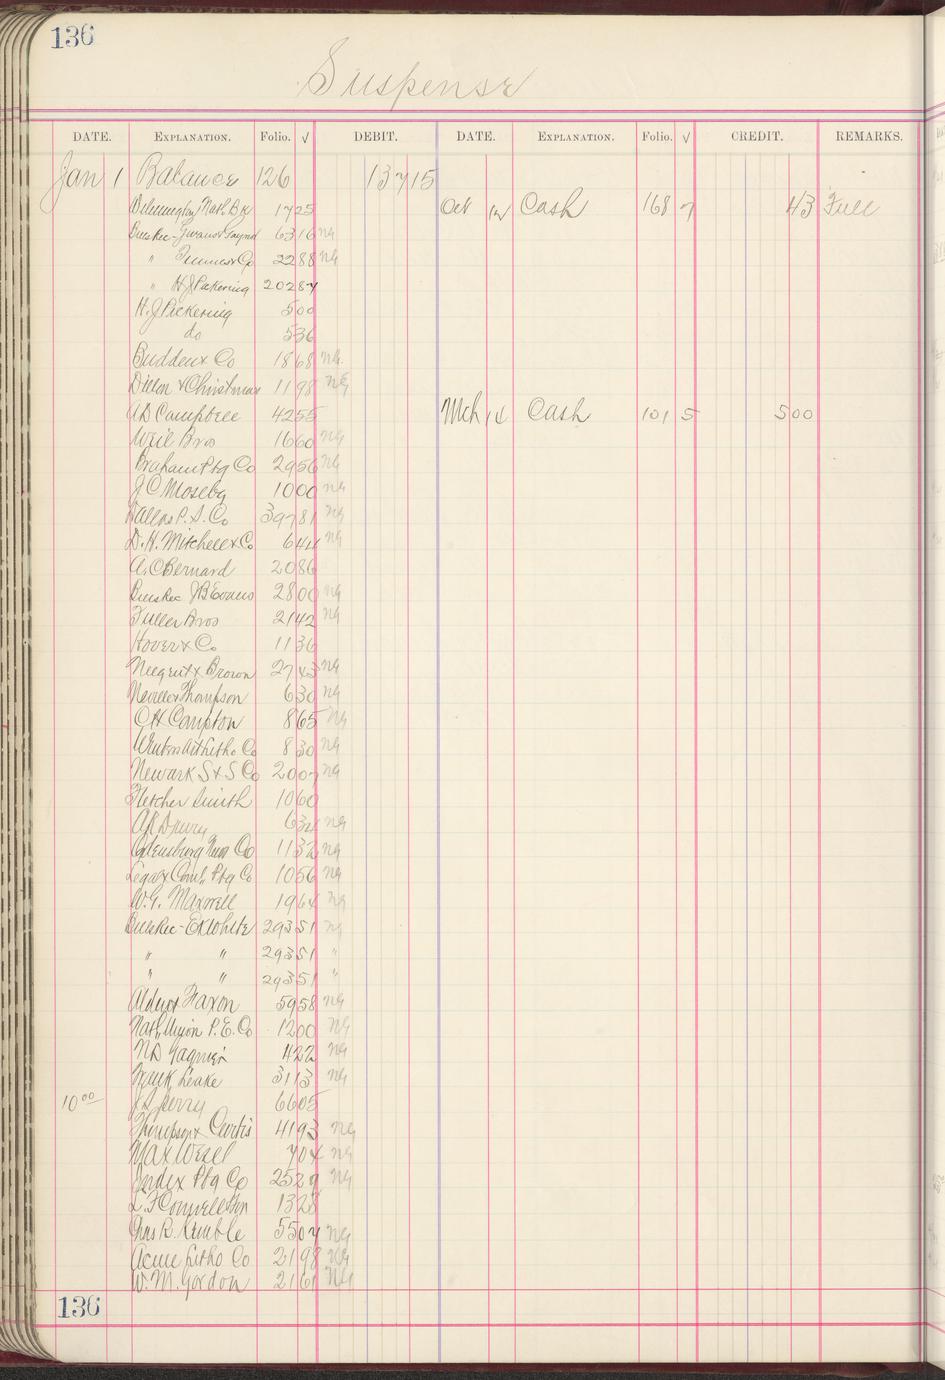 136
Suspense
DATE. EXPLANATION. Folio. √ DEBIT. DATE. EXPLANATION. Folio. √ CREDIT. REMARKS.
Jan 1 Balance 126 137 15
Wilmington Natl Bk 17 25 Oct 12 Cash 168 7 43 Full
Bills Rec- 63 16 ng
" & Co 22 88 ng
" H J Pickering 202 87
H. J Pickering 5 00
do 5 36
Buddeux Co 18 68 ng
Dillon & Christmas 11 98 ng
AD Campbell 42 55 Mch 14 Cash 101 5 5 00
Weil Bros 16 60 ng
Braham Ptg Co 29 56 ng
J C Moseby 10 00 ng
Dallas P. S. Co 397 81 ng
D. H. Mitchell & Co 6 44 ng
A. C Bernard 20 86
Bills Rec J B Evans 28 00 ng
Fuller Bros 21 42 ng
Hover & Co 11 36
& Brown 27 43 ng
Neville & Thompson 6 30 ng
C H Compton 8 65 ng
Litho Co 8 30 ng
Newark S & S Co 20 07 ng
Fletcher Smith 10 60
Drury 6 34 ng
Ogdensburg Co 11 32 ng
Legal & Coml Ptg Co 10 56 ng
W. G. Maxwell 19 64 ng
Bills Rec- E K White 293 51 ng
" " 293 51 "
" " 293 51 "
Alden & Faxon 59 58 ng
Natl Union P. E. Co 12 00 ng
N D Gagnier 4 22 ng
Mark Leake 31 13 ng
10 00 Perry 66 05
Thompson & Curtis 41 93 ng
Max Wesel 7 04 ng
Index Ptg Co 25 29 ng
L F Connell 13 28
Chas R. Kimble 55 07 ng
Acme Litho Co 21 98 ng
W. M. Gordon 21 61 ng
136